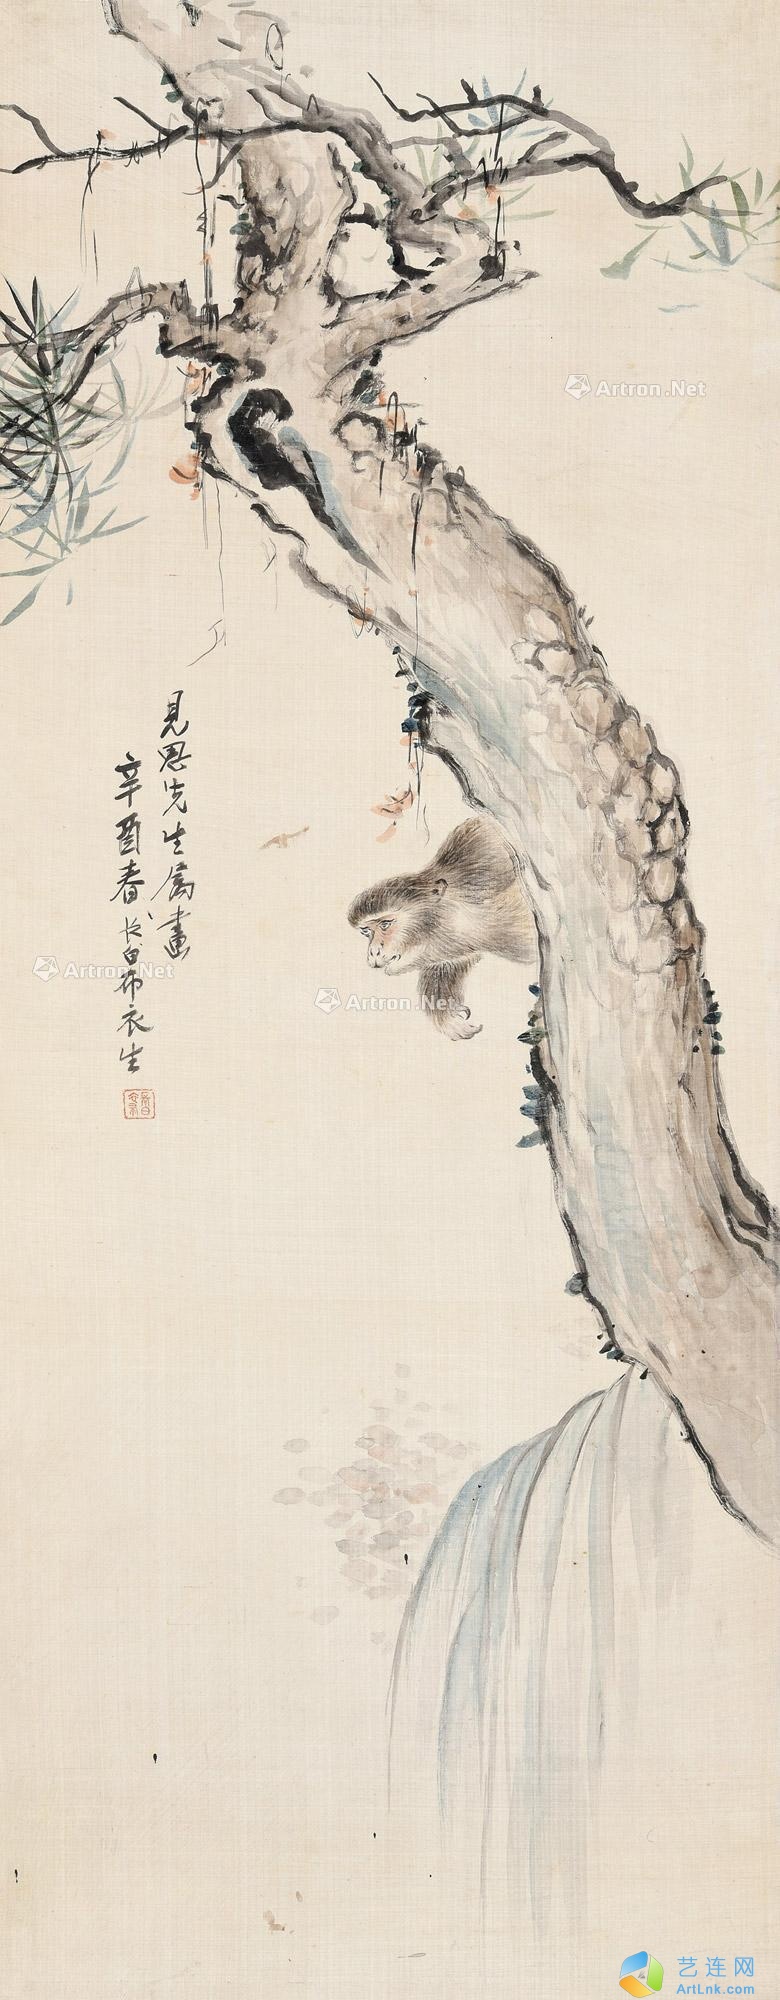 見恩先生屬畫
辛酉春長白布衣生
Artron.Net
Artron.Net
Artron.Net
艺连网
ArtLnk.com